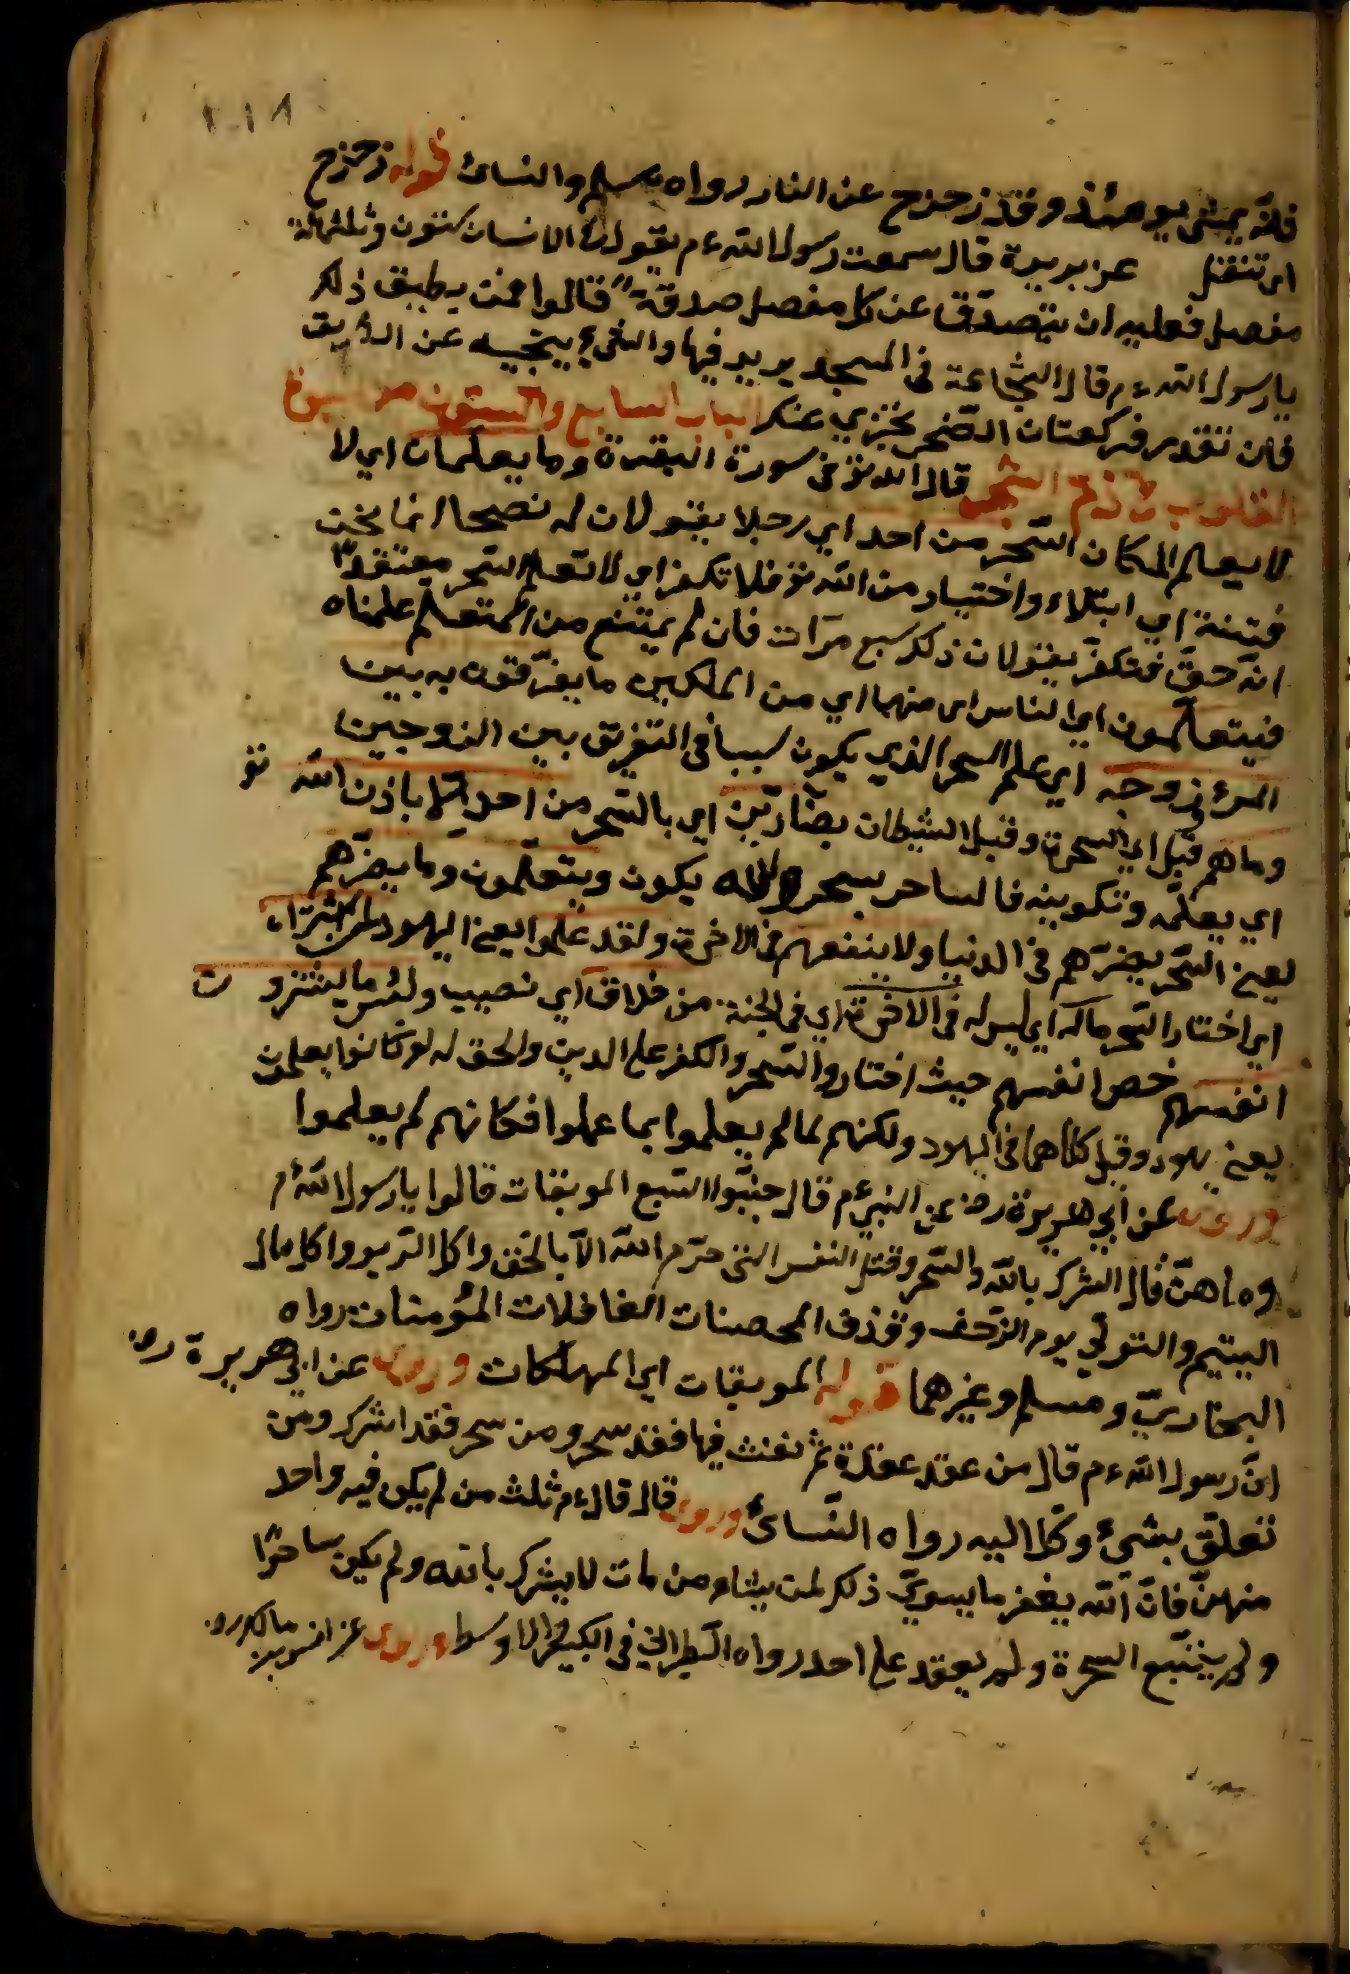 ٢٠١٨
فانه يمشي يومئذ وقد زحزح عن النار رواه مسلم والنسائ قوله زحزح
اى تنقل عن بريدة قال سمعت رسول الله ءم يقول في الانسان ستون وثلثمائة
مفصل فعليه ان يتصدق عن كل مفصل صدقة قالوا فمن يطيق ذلك
يا رسول الله ءم قال النخاعة في المسجد يريد فيها والشئ ينجيه عن الطريق
فان تقدر فركعتان الضحى يجزي عنك الباب السابع والستون من
القلوب في ذم السحر قال الله تع في سورة البقرة وما يعلمان اي لا
لا يعلم الملكان السحر من احد اي رجلا يقولان له نصحا انما نحن
فتنة اي ابتلاء واختبار من الله تع فلا تكفر اي لا تتعلم السحر معتقدا
انه حق فتكفر يقولان ذلك سبع مرات فان لم يمتنع من التعلم علمناه
فيتعلمون اي الناس اى منهما اي من الملكين ما يفرقون به بين
المرء وزوجه اي علم السحر الذي يكون سببا في التفريق بين الزوجين
وما هم قيل اي السحرة وقيل الشيطان بضارين به اي بالسحر من احد الا باذن الله تع
اي بعلمه وتكوينه فالساحر يسحر والله يكون ويتعلمون وما يضرهم
يعنى السحر يضرهم في الدنيا ولا ينفعهم في الاخرة ولقد علموا يعنى اليهود لمن اشتراه
اي اختار السحر ماله اي ليس له في الاخرة اي في الجنة من خلاق اي نصيب ولبئس ما يشترون
انفسهم خص انفسهم حيث اختاروا السحر والكفر على الدين والحق له لو كانوا يعلمن
يعنى يهود وقيل كلاهما في اليهود ولكنهم لما لم يعلموا بما علموا فكانهم لم يعلموا
وروى عن ابي هريرة رض عن النبي ءم قال جنبوا السبع الموبقات قالوا يا رسول الله ءم
وما هن قال الشرك بالله والسحر وقتل النفس التي حرم الله الا بالحق واكل الربو واكل مال
اليتيم والتولي يوم الزحف وقذف المحصنات الغافلات المؤمنات رواه
البخاري ومسلم وغيرهما قوله الموبقات اي المهلكات وروى عن ابي هريرة رض
ان رسول الله ءم قال من عقد عقدة ثم نفث فيها فقد سحر ومن سحر فقد اشرك ومن
تعلق بشئ وكل اليه رواه النسائ وروى قال قال ءم ثلث من لم يكن فيه واحد
منهن فان الله يغفر ما يسوي ذلك لمن يشاء من مات لا يشرك بالله ولم يكن ساحرا
ولم يتبع السحرة ولم يحقد على احد رواه الطبراني في الكبير والاوسط وروى عن انس بن مالك رض